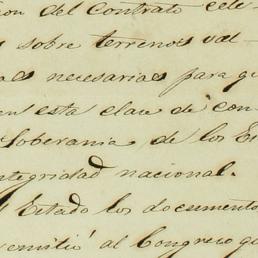 ion del contrato cele-
s sobre terrenos val-
as necesarias para qu
en esta clase de con-
Soberania de los Es
ntegridad nacional.
Estado los documento
remitió al Congreso qu